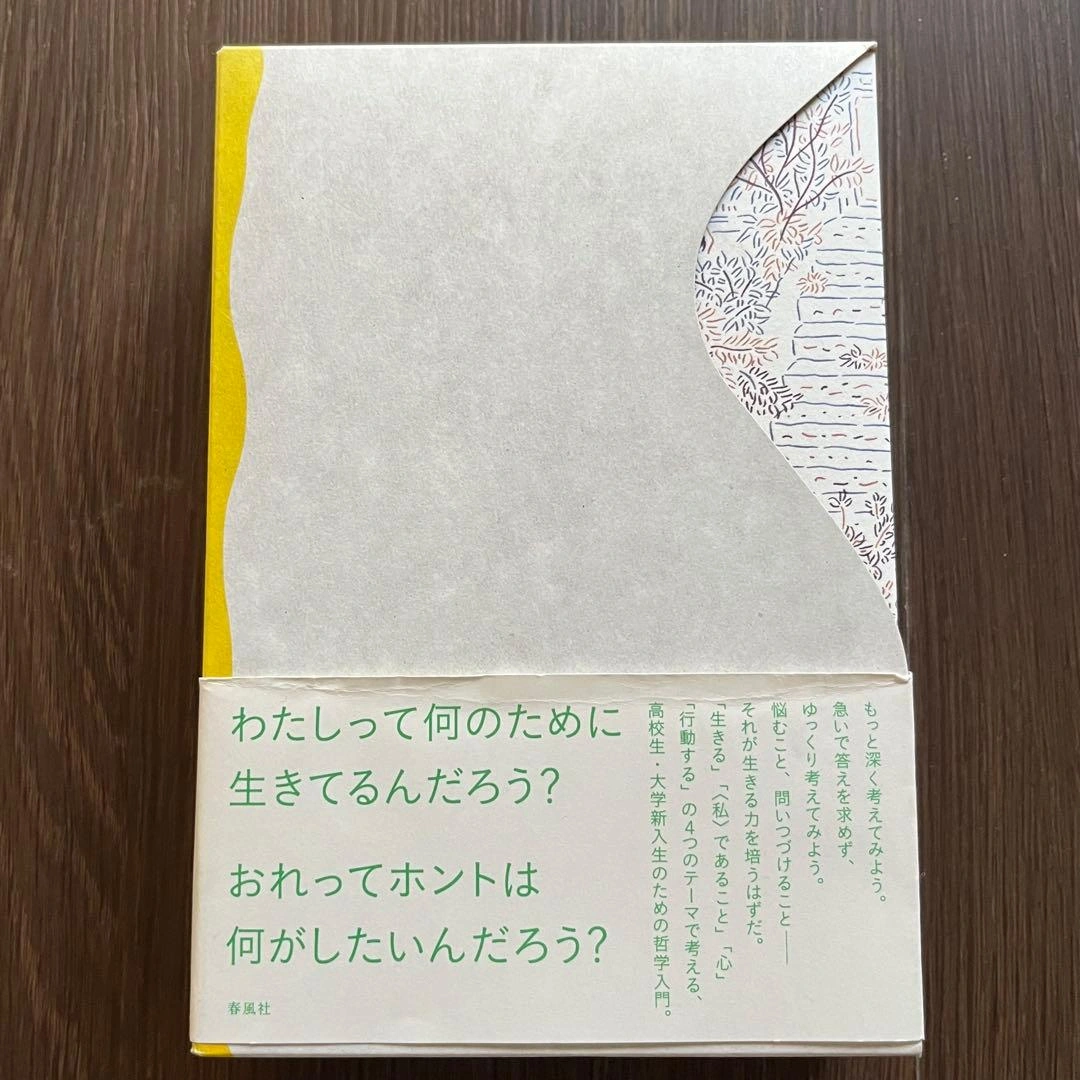 わたしって何のために
生きてるんだろう?
おれってホントは
何がしたいんだろう?
春風社
もっと深く考えてみよう。
急いで答えを求めず、
ゆっくり考えてみよう。
悩むこと、問いつづけること――
それが生きる力を培うはずだ。
「生きる」「〈私〉であること」「心」
「行動する」の4つのテーマで考える、
高校生・大学新入生のための哲学入門。